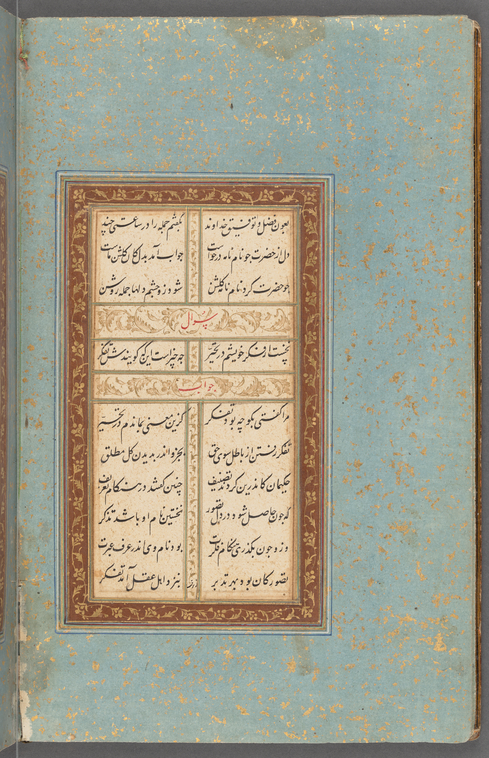 بعون فضل و توفیق خداوند بگفتم جمله را در ساعتی چند
دل از حضرت چو نام نامه درخواست جواب آمد بدل کان گلشن ماست
چو حضرت کرد نام نامه گلشن شود زو چشم دلها جمله روشن
سوال
نخست از فکر خویشم در تحیر چه چیزست این که گویندش تفکر
جواب
مرا گفتی بگو چه بود تفکر کزین معنی بماندم در تحیر
تفکر رفتن از باطل سوی حق بجزو اندر بدیدن کل مطلق
حکیمان کاندرین کردند تصنیف چنین گفتند در هنگام تعریف
که چون حاصل شود در دل تصور نخستین نام او باشد تذکر
وزو چون بگذری هنگام فکرت بود نام وی اندر عرف عبرت
تصور کان بود بهر تدبر بنزد اهل عقل آمد تفکر